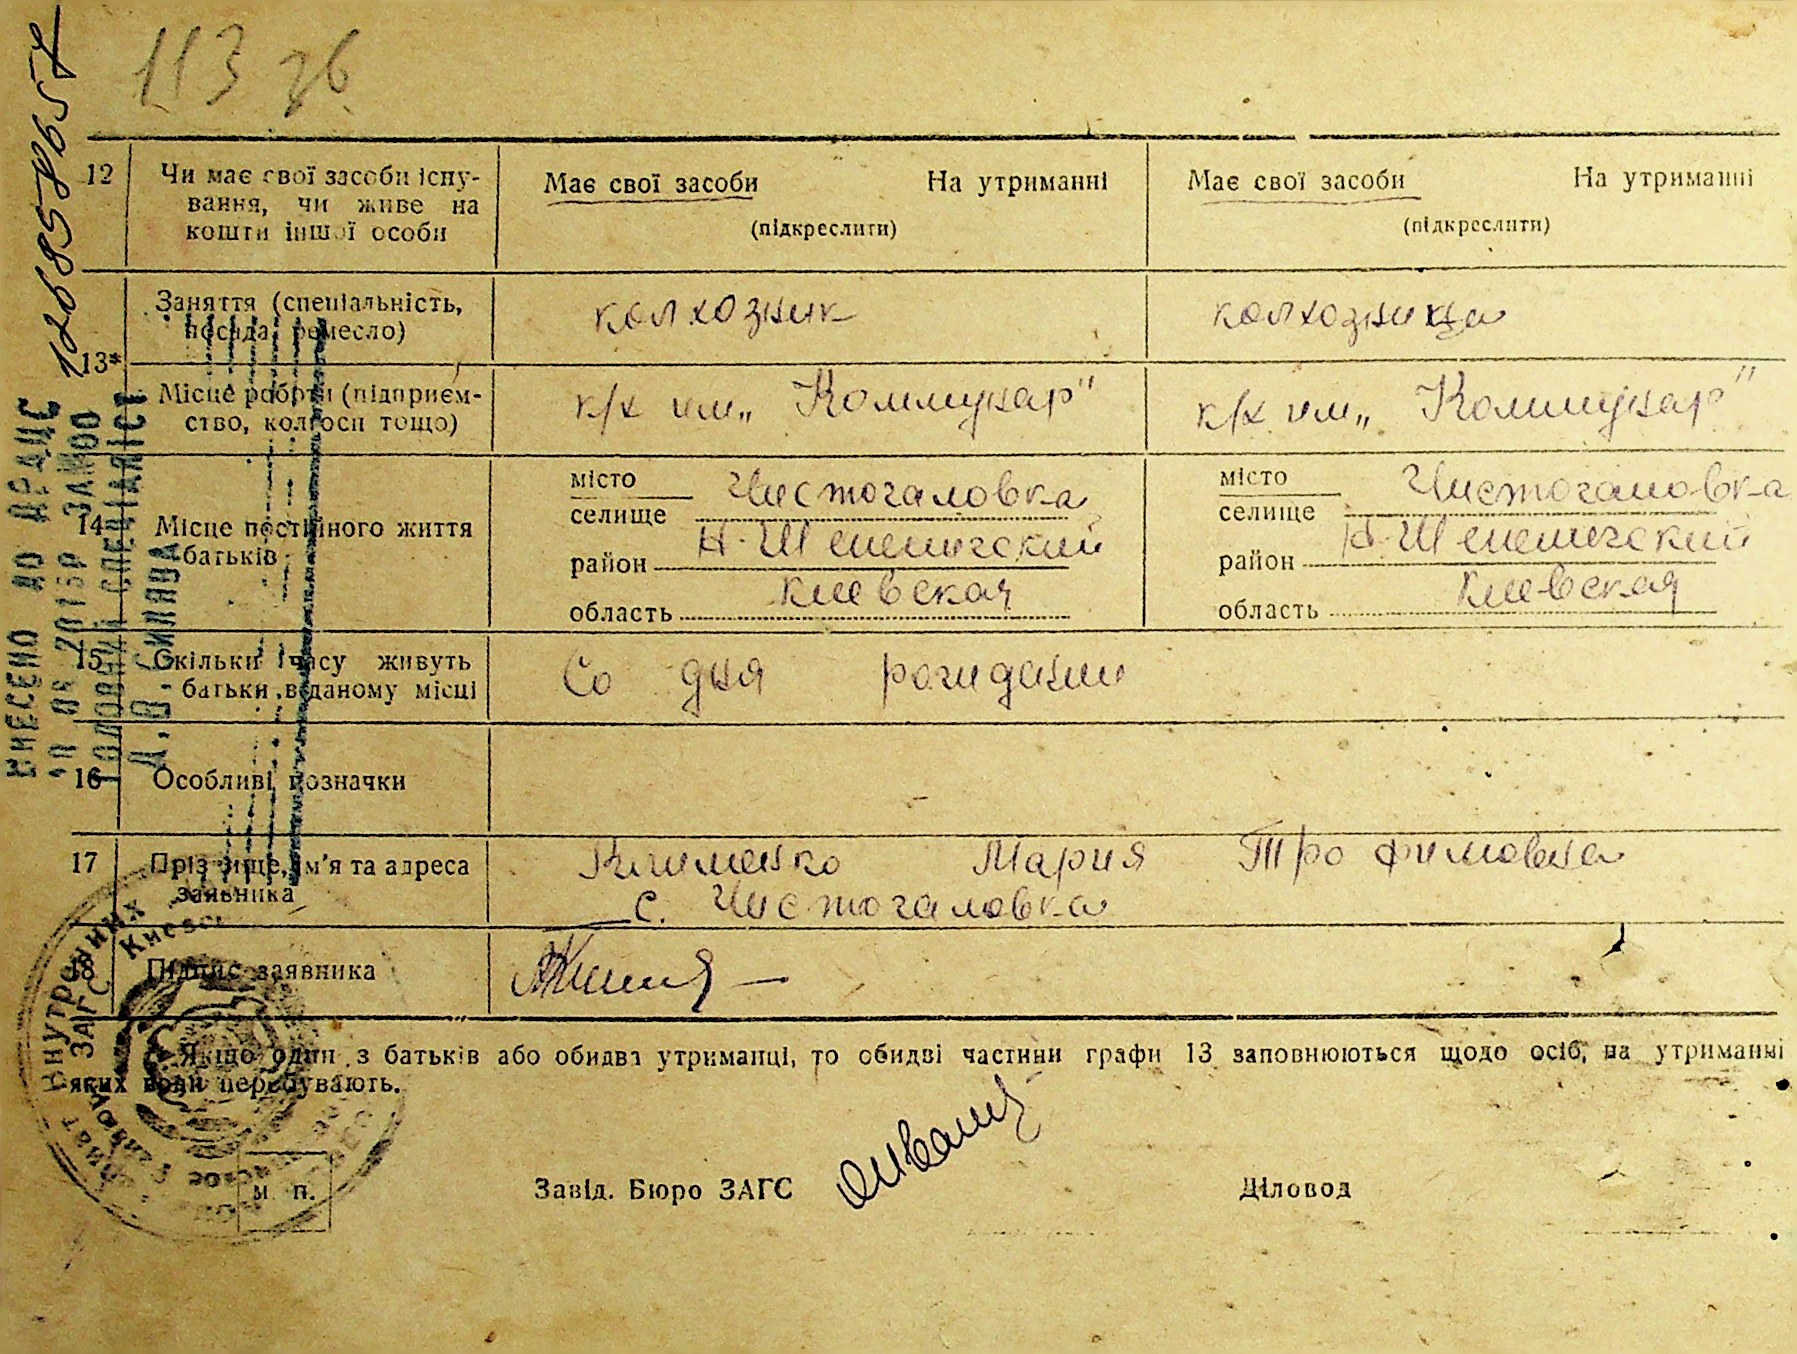 113 зв
12 Чи має свої засоби існу- Має свої засоби На утриманні Має свої засоби На утриманні
вання, чи живе на (підкреслити) (підкреслити)
кошти іншої особи
13* Заняття (спеціальність, колхозник колхозница
посада, ремесло)
Місце роботи (підприєм- к/х им„ Коммунар" к/х им„ Коммунар"
ство, колгосп тощо)
14 Місце постійного життя місто Чистогаловка місто Чистогаловка
батьків селище селище
район Н-Шепеличский район Н-Шепеличский
область Киевская область Киевская
15 Скільки часу живуть Со дня рождения
батьки в даному місці
16 Особливі позначки
17 Прізвище, ім'я та адреса Клименко Мария Трофимовна
заявника с. Чистогаловка
18 Підпис заявника
* Якщо один з батьків або обидва утриманці, то обидві частини графи 13 заповнюються щодо осіб, на утриманні
яких вони перебувають.
Завід. Бюро ЗАГС Діловод
м. п.
ВНЕСЕНО ДО ДРАЦС
ГОЛОВНИЙ СПЕЦІАЛІСТ
внутренних
ЗАГС
Киевс